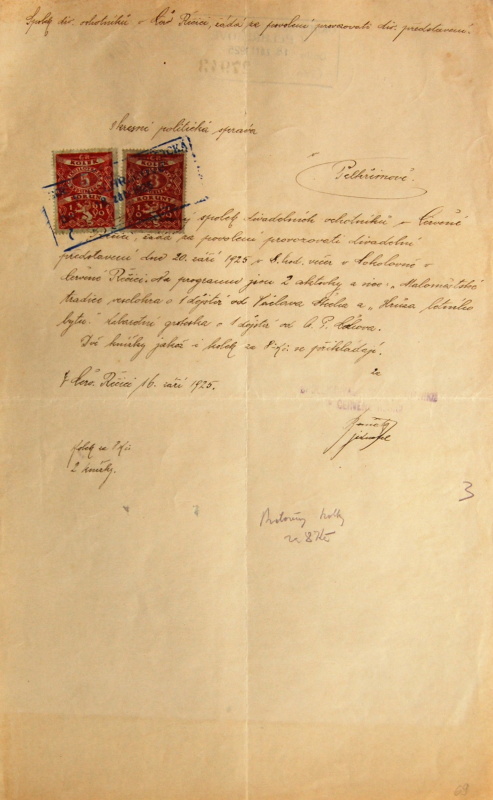 Spolek div. ochotníků v Červ. Řečici, žádá za povolení provozovati div. představení.
Okresní politická správa
v Pelhřimově.
KOLEK KOLEK
5 5
KORUN KORUN
spolek divadelních ochotníků v Červené
Řečici, žádá za povolení provozovati divadelní
představení dne 20. září 1925 v 8. hod. večer v Sokolovně v
Červené Řečici. Na programu jsou 2 aktovky a sice: „Maloměstské
tradice veselohra o 1 dějství od Václava Štecha a „Hrůza letního
bytu" žertovní groteska o 1 dějství od A. P. Čechova.
Dvě knížky jakož i kolek za 8 Kč. se přikládají.
V Červ. Řečici 16. září 1925.
za
jednatel
kolek za 8 Kč
2 knížky.
kolky
za 2 Kč
3